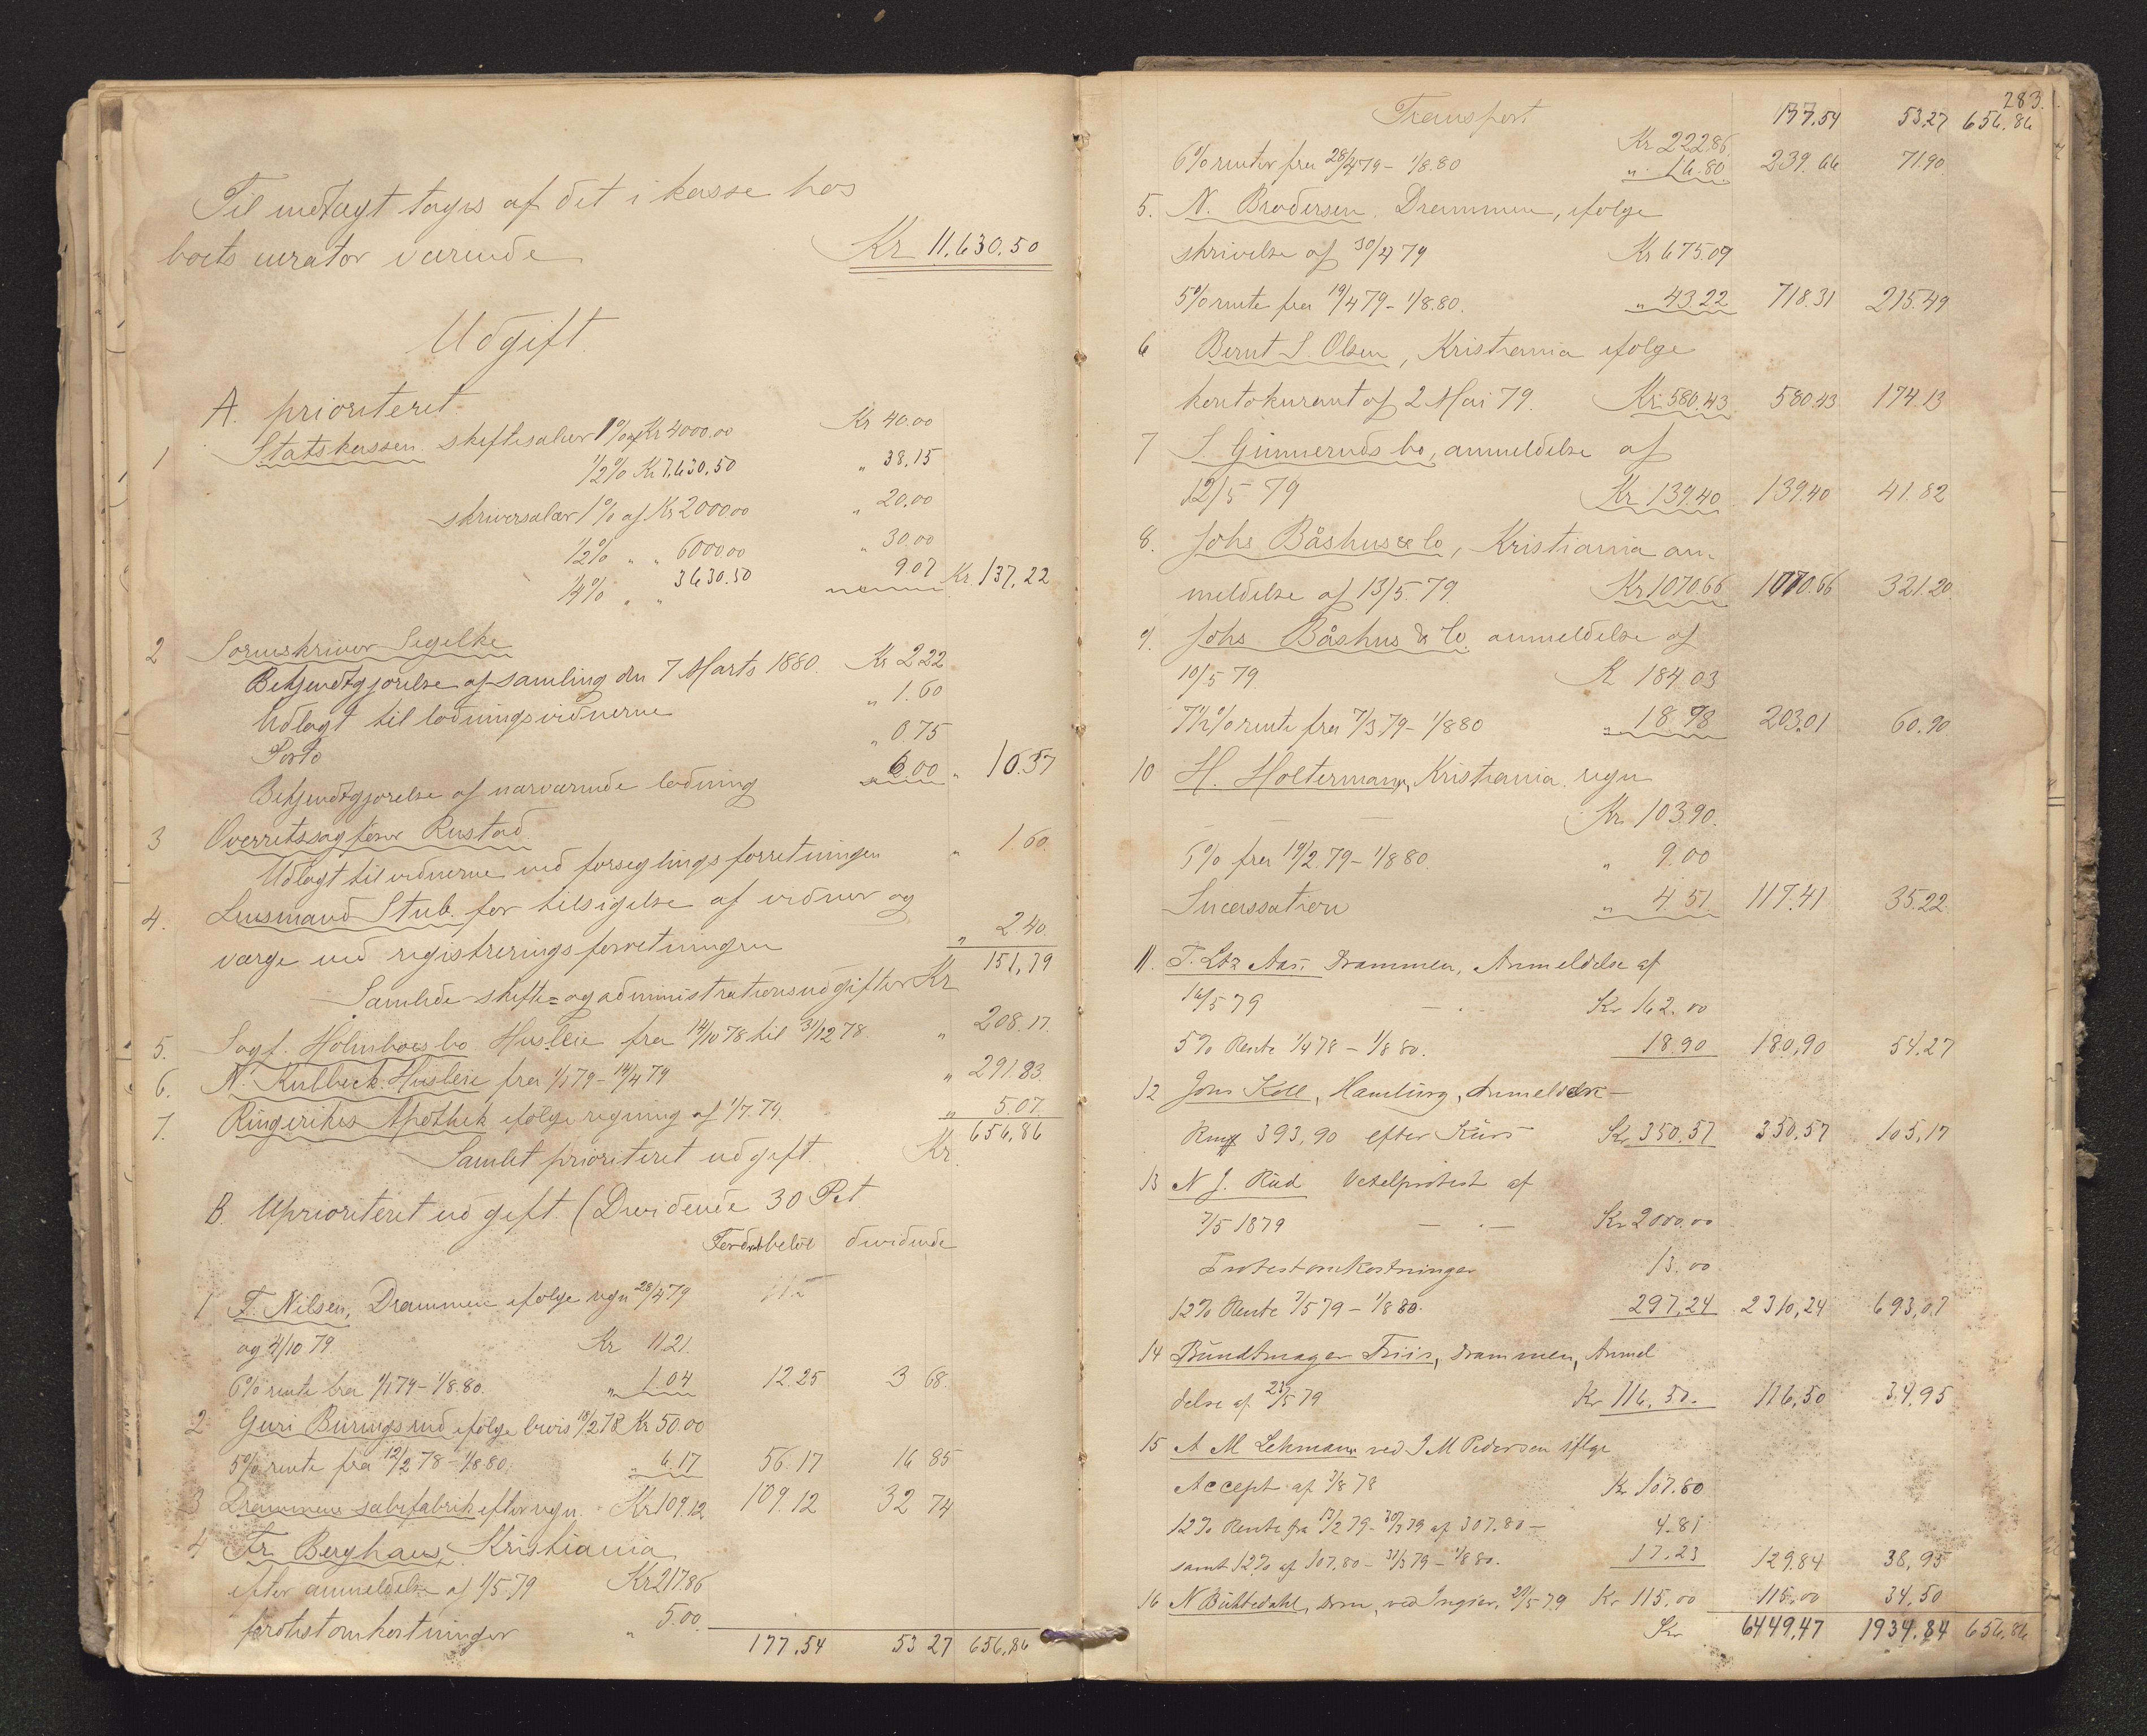 Til indtægt tages af det i kasse hos
boets curator værende Kr 11.630.50
Udgift.
A. prioriteret
1 Statskassen. skiftesalær 1% af Kr 4000.00 Kr 40.00
1/2% Kr 7.630.50 " 38.15
skriversalær 1% af Kr 2000.00 " 20.00
1/2% " " 6000.00 " 30.00
1/4% " " 3630.50 9.07 Kr. 137,22
2 Sorenskriver Segelke
Bekjendtgjørelse af samling den 7 Marts 1880. Kr 2.22
Udlagt til lodningsvidnerne " 1.60
Porto " 0.75
Bekjendtgjørelse af nærværende lodning " 6.00 " 10.57
3 Overretssagfører Rustad.
Udlagt til vidnerne ved forseglingsforretningen " 1.60
4. Lensmand Stub. for tilsigelse af vidner og
værge ved registreringsforretningen " 2.40.
Samlede skifte= og administrationsudgifter Kr 151,79
5. Sagf. Holmboes bo Husleie fra 14/10 78 til 31/12 78 " 208.17.
6. N. Kulbeck. Husleie fra 1/1 79 - 14/4 79 " 291.83.
7. Ringerikes Apothek ifølge regning af 1/7. 79. " 5.07.
Samlet prioriteret udgift Kr. 656,86
B. Uprioriteret udgift. (Dividende 30 Pct.
Fordr.beløb dividende
1 F. Nilsen, Drammen ifølge regn 28/4 79
og 4/10 79 Kr 11.21.
6% rente fra 1/1 79 - 1/8.80. " 1.04 12.25 3 68
2 Guri Buringsrud ifølge bevis 18/2 78 Kr 50.00
5% rente fra 12/2 78 - 1/8 80. " 6.17 56.17 16 85
3 Drammens sæbefabrik efter regn. Kr 109.12 109.12 32 74
4 Fr. Berghaus, Kristiania
efter anmeldelse af 1/5 79 Kr 217.86
protestomkostninger " 5.00.
177.54 53 27 656,86
283.
Transport 177.54 53.27 656.86
Kr 222.86
6% renter fra 28/4 79 - 1/8.80 " 16.80. 239.66 71.90
5. N. Brodersen, Drammen, ifølge
skrivelse af 30/4 79 Kr 675.09
5% rente fra 19/4 79 - 1/8.80. " 43.22 718.31 215.49
6 Bernt S. Olsen, Kristiania ifølge
kontokurant af 2 Mai 79. Kr 580.43 580.43 174.13
7 S. Gunneruds bo, anmeldelse af
12/5 79 Kr 139.40 139.40 41.82
8. Johs Båshus & Co, Kristiania an-
meldelse af 13/5. 79. Kr 1070.66 1070.66 321.20
9. Johs Båshus & Co. anmeldelse af
10/5 79. K 184.03
7 1/2% rente fra 7/3 79 - 1/8 80 " 18.98 203.01 60.90
10 H. Holtermann, Kristiania. regn
— — — Kr. 103.90.
6% fra 19/2. 79 - 1/8 80. " 9.00
Incassation " 4.51. 117.41 35.22
11. T. Ltz Aas. Drammen, Anmeldelse af
16/5 79 — . — Kr 162.00
5% Rente 1/4 78 - 1/8 80. 18.90 180,90 54,27
12 Johs Koll, Hamburg, Anmeldelse —
Rmk 393,90 efter Kurs Kr 350.57 350,57 105,17
13 N J. Rud Vexelprotest af
7/5 1879 — . — Kr 2000.00
Protestomkostninger 13.00
12% Rente 7/5 79 - 1/8 80. 297,24 2310,24 693,07
14 Bundtmager Friis, Drammen, Anmel
delse af 23/5 79 Kr 116.50. 116,50 34,95
15 A M Lehmann ved J M Pedersen iflge
Accept af 3/8 78 Kr 107.80
12% Rente fra 13/2 79 - 30/3 79 af 307.80 — 4.81
samt 12% af 107,80 - 31/3 79 - 1/8 80. 17.23 129.84 38,95
16 N Buhtedahl, Drm, ved Ingier, 29/5 79 Kr 115.00 115,00 34,50
Kr 6449,47 1934.84 656,86